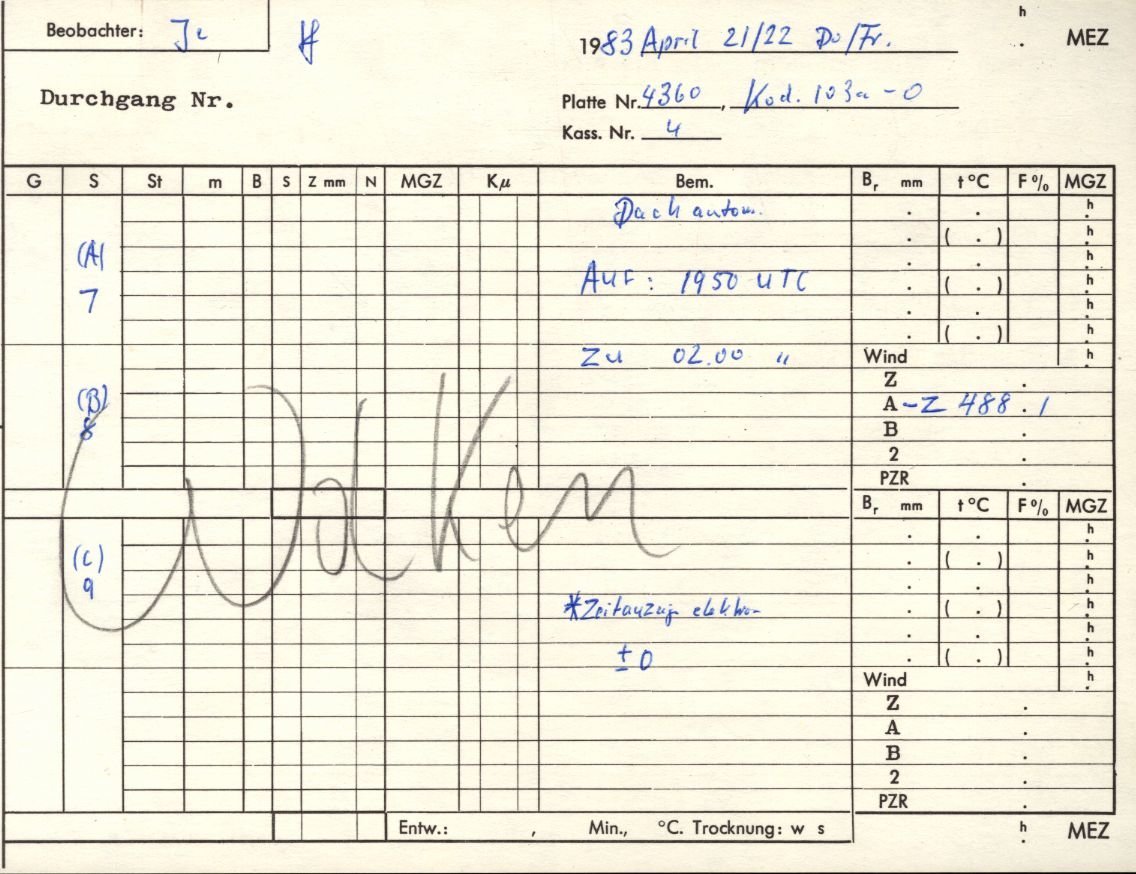 Beobachter: Je
h
1983 April 21/22 Do/Fr. . MEZ
Durchgang Nr.
Platte Nr. 4360, Kod. 103a-O
Kass. Nr. 4
G S St m B S Z mm N MGZ Kμ Bem. Br mm t °C F% MGZ
Dach autom. . . h
. ( . ) h
(A) . . h
7 Auf: 1950 UTC . ( . ) h
. . h
. ( . ) h
Zu 02.00 " Wind h
Z .
(B) A -Z 488.1
8 B .
2 .
PZR .
Wolken
Br mm t °C F% MGZ
. . h
(C) . ( . ) h
9 . . h
*Zeitanzeig elektron . ( . ) h
. . h
±0 . ( . ) h
Wind h
Z .
A .
B .
2 .
PZR .
Entw.: , Min., °C. Trocknung: w s h
. MEZ